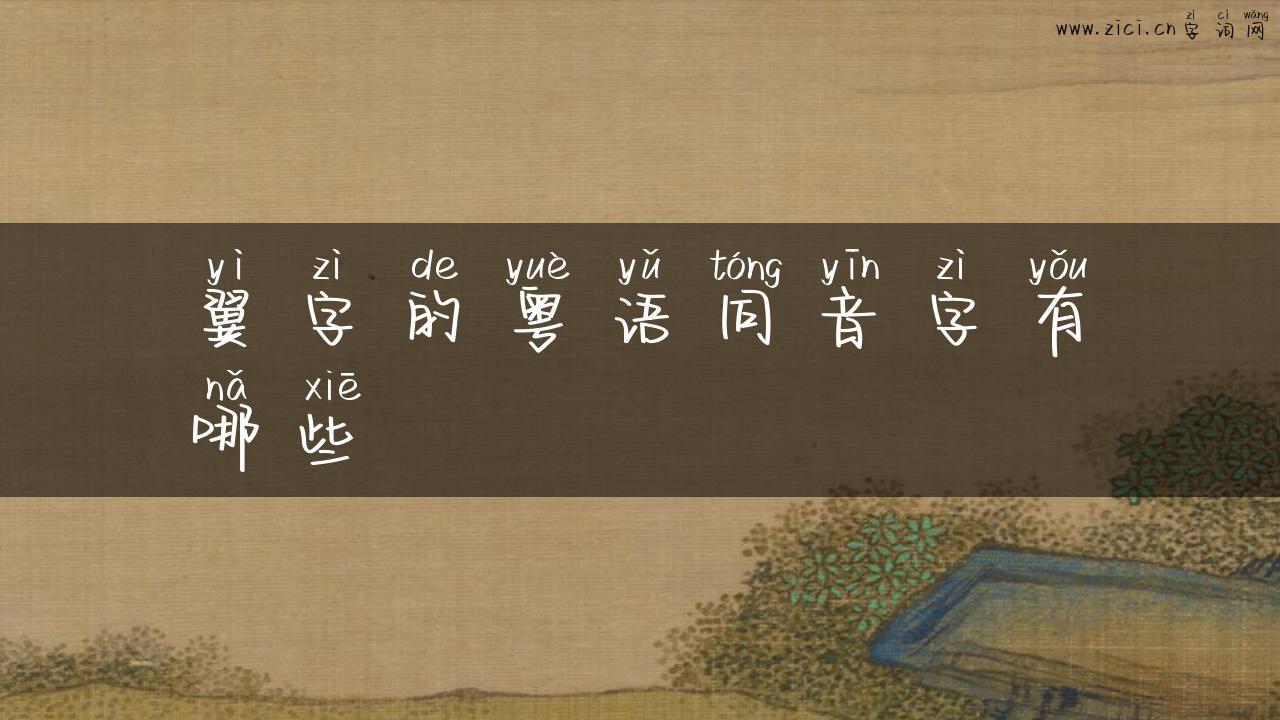 zì cí wǎng
www.zici.cn 字 词 网
yì zì de yuè yǔ tóng yīn zì yǒu
翼 字 的 粤 语 同 音 字 有
nǎ xiē
哪 些